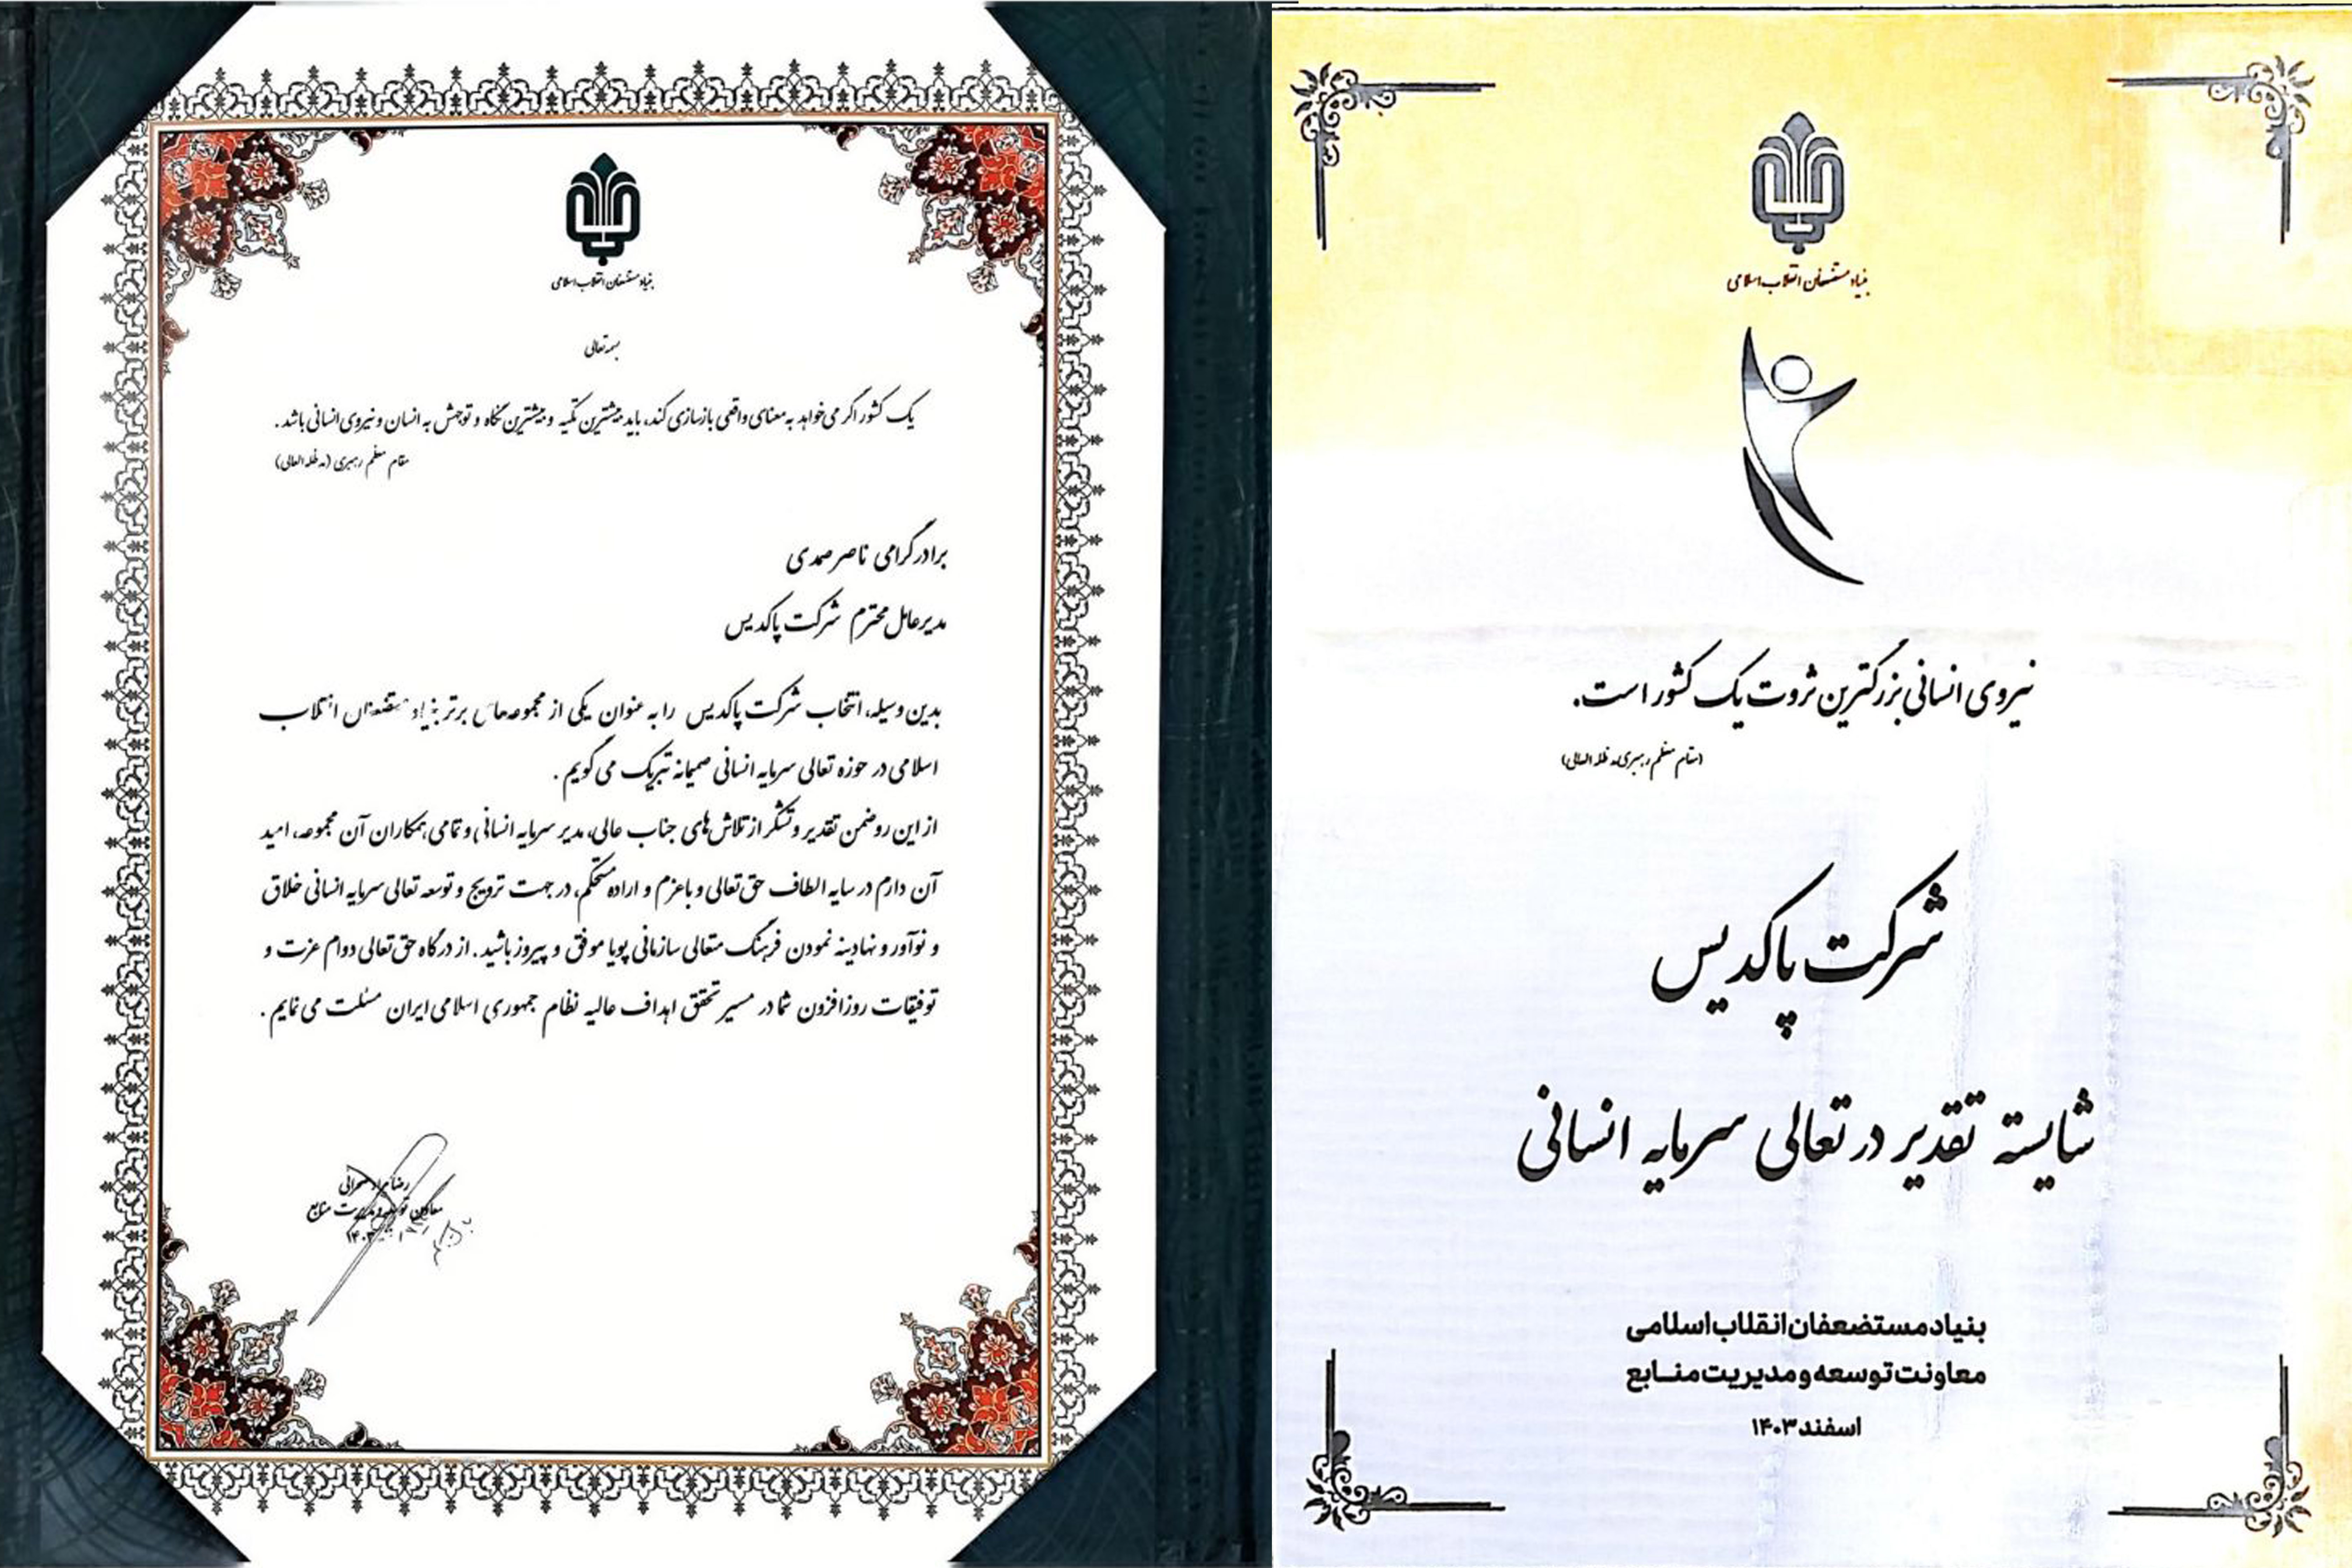 بنیاد مستضعفان انقلاب اسلامی
بسمه تعالی
یک کشور اگر می‌خواهد به معنای واقعی بازسازی کند، باید بیشترین تکیه و بیشترین نگاه و توجهش به انسان و نیروی انسانی باشد.
مقام معظم رهبری (مدظله العالی)
برادر گرامی ناصر صمدی
مدیرعامل محترم شرکت پاکدیس
بدین وسیله، انتخاب شرکت پاکدیس را به عنوان یکی از مجموعه‌های برتر بنیاد مستضعفان انقلاب
اسلامی در حوزه تعالی سرمایه انسانی صمیمانه تبریک می گویم.
از این رو ضمن تقدیر و تشکر از تلاش‌های جناب عالی، مدیر سرمایه انسانی و تمامی همکاران آن مجموعه، امید
آن دارم در سایه الطاف حق تعالی و با عزم و اراده مستحکم، در جهت ترویج و توسعه تعالی سرمایه انسانی خلاق
و نوآور و نهادینه نمودن فرهنگ متعالی سازمانی پویا موفق و پیروز باشید. از درگاه حق تعالی دوام عزت و
توفیقات روزافزون شما در مسیر تحقق اهداف عالیه نظام جمهوری اسلامی ایران مسئلت می نمایم.
رضا
معاون توسعه و مدیریت منابع
۱۴۰۳
بنیاد مستضعفان انقلاب اسلامی
نیروی انسانی بزرگترین ثروت یک کشور است.
(مقام معظم رهبری مدظله العالی)
شرکت پاکدیس
شایسته تقدیر در تعالی سرمایه انسانی
بنیاد مستضعفان انقلاب اسلامی
معاونت توسعه و مدیریت منابع
اسفند ۱۴۰۳